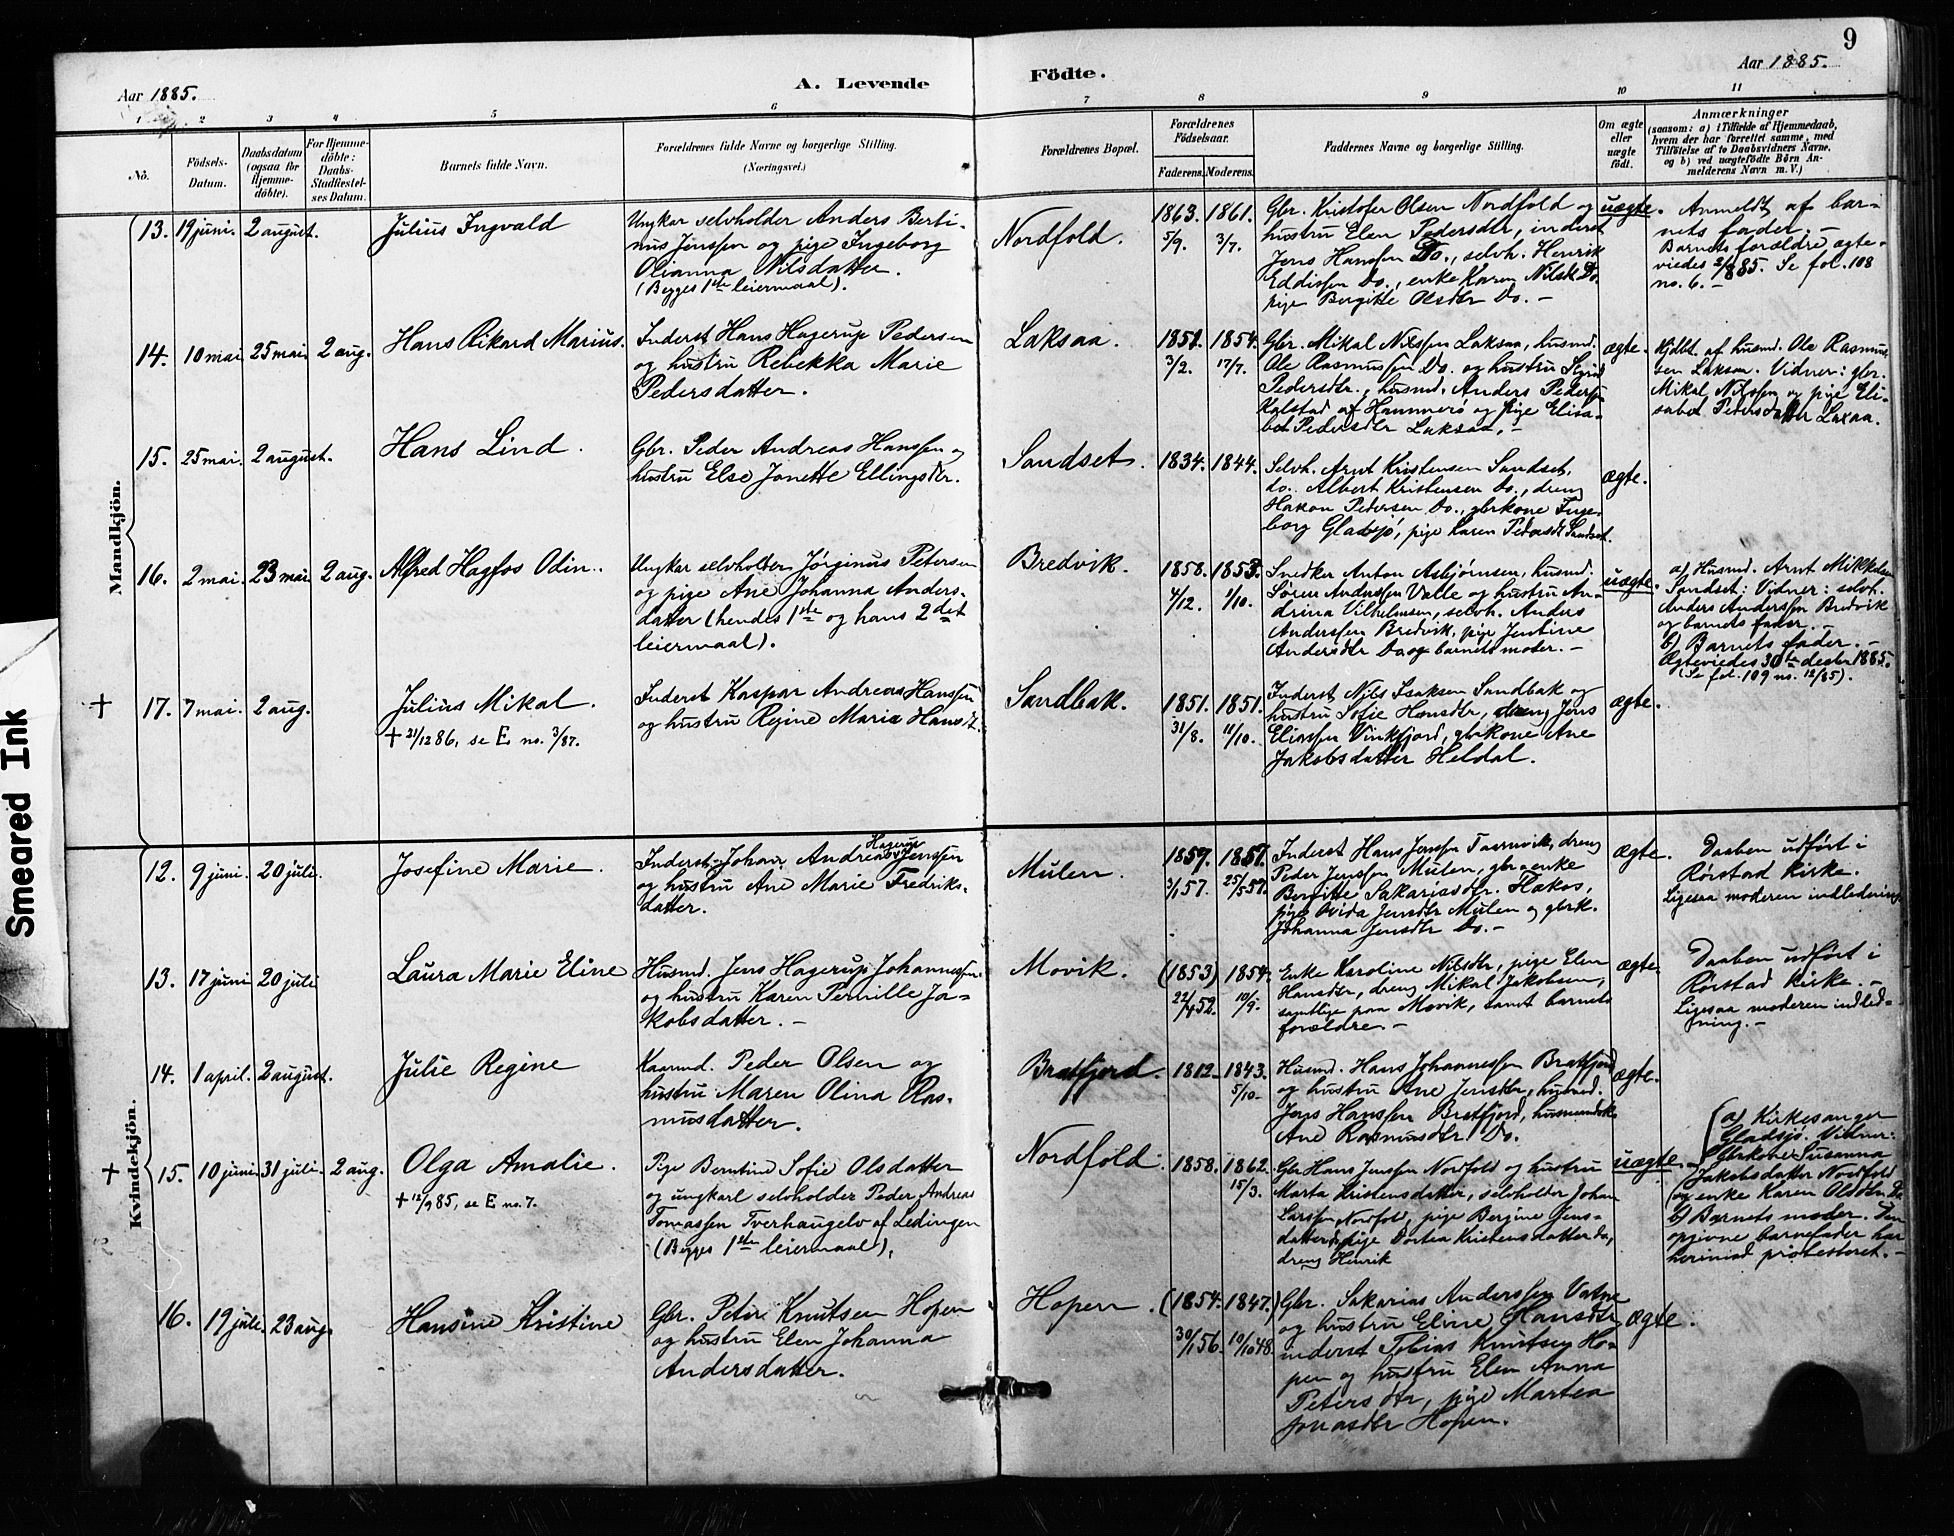 9
Aar 1885.
A. Levende
Födte.
Aar 1885.
1 2 3 4 5 6 7 8 9 10 11
No.
Födsels-
Datum.
Daabsdatum
(ogsaa for
Hjemme-
döbte).
For Hjemme-
döbte:
Daabs-
Stadfæstel-
ses Datum.
Barnets fulde Navn.
Forældrenes fulde Navne og borgerlige Stilling.
(Næringsvei.)
Forældrenes Bopæl.
Forældrenes
Födselsaar.
Faderens.
Moderens.
Faddernes Navne og borgerlige Stilling.
Om ægte
eller
uægte
født.
Anmærkninger
(saasom: a) i Tilfælde af Hjemmedaab,
hvem der har forrettet samme, med
Tilföielse af to Daabsvidners Navne,
og b) ved uægtefödte Börn An-
melderens Navn m. V.)
Mandkjön.
13. 19 juni. 2 august.
Julius Ingvald
Ungkar selvholder Anders Berti-
nus Jenssen og pige Ingeborg
Olianna Nilsdatter.
(Begges 1ste leiermaal).
Nordfold.
1863. 1861.
5/9. 3/7.
Gbr. Kristofer Olsen Nordfold og
hustru Elen Pedersdtr, inderst
Jens Hanssen Do., selvh. Henrik
Eddissen Do., enke Karen Nilsdtr Do.
pige Bergitte Olsdtr Do. –
uægte.
Anmeldt af bar-
nets fader. –
Barnets forældre ægte-
viedes 2/8 85. Se fol. 108
no. 6. –
14. 10 mai. 25 mai. 2 aug.
Hans Rikard Marius.
Inderst Hans Hagerup Pedersen
og hustru Rebekka Marie
Pedersdatter.
Laksaa.
1851. 1854.
3/2. 17/7.
Gbr. Mikal Nilssen Laksaa, husmd.
Ole Rasmussen Do. og hustru Sigrid
Pedersdtr., husmd. Anders Pederssen
Kalstad af Hammerø og pige Elisa-
bet Pedersdtr Laksaa. –
ægte.
Hjdbt. af husmd. Ole Rasmus-
sen Laksaa. Vidner: gbr.
Mikal Nilssen og pige Eli-
sabet Pedersdatter Laxaa.
15. 25 mai. 2 august.
Hans Lind.
Gbr. Peder Andreas Hanssen og
hustru Else Jonette Ellingsdtr.
Sandset.
1834. 1844.
Selvh. Arnt Kristensen Sandset,
do. Albert Kristensen Do., dreng
Hakon Petersen Do., gbrkone Inge-
borg Gladsjø, pige Karen Pedersdtr Sandset.
ægte.
16. 2 mai. 23 mai 2 aug.
Alfred Hagfos Odin.
Ungkar selvholder Jørginus Petersen
og pige Ane Johanna Anders-
datter (hendes 1ste og hans 2det
leiermaal).
Bredvik.
1858. 1853.
4/12. 1/10.
Snedker Anton Asbjørnsen, husmd.
Søren Anderssen Valle og hustru An-
drina Vilhelmsen, selvh. Anders
Anderssen Bredvik, pige Jentine
Andersdtr Do og barnets moder. –
uægte.
a) Husmd. Arnt Mikkelsen
Sandset: Vidner: selvh.
Anders Anderssen Bredvik
og barnets fader. –
b) Barnets fader. –
Ægteviedes 30te decbr 1885.
(Se fol. 109 no. 12/85).
+
17. 7 mai. 2 aug.
Julius Mikal.
+ 21/12 86, se E no. 3/87.
Inderst Kaspar Andreas Hanssen
og hustru Regine Marie Hansdt.
Sandbak.
1851. 1851.
31/8. 11/10.
Inderst Nils Isaksen Sandbak og
hustru Sofie Hansdtr, dreng Jens
Eliassen Vinkfjord, gbrkone Ane
Jakobsdatter Heldal.
ægte.
Kvindekjön.
12. 9 juni. 20 juli.
Josefine Marie.
Hagerup
Inderst Johan Andreas Jenssen
og hustru Ane Marie Fredriks-
datter.
Mulen.
1857. 1857.
3/1 57. 25/5 57.
Inderst Hans Jenssen Taarnvik, dreng
Peder Jenssen Mulen, gbr. enke
Bergitte Sakariasdtr. Flakos,
pige Ovida Jensdtr Mulen og gbrk.
Johanna Jensdtr Do. –
ægte.
Daaben udført i
Rørstad kirke.
Ligesaa moderen indledning.
13. 17 juni 20 juli
Laura Marie Eline
Husmd. Jens Hagerup Johannessen
og hustru Karen Pernille Ja-
kobsdatter. –
Movik.
(1853) 1854.
22/4 52. 10/9.
Enke Karoline Nilsdtr, pige Elen
Hansdtr, dreng Mikal Jakobsen,
samtlige paa Movik, samt barnets
forældre. –
ægte.
Daaben udført i
Rørstad kirke. –
Ligesaa moderen indled-
ning. –
14. 1 april. 2 august.
Julie Regine
Kaarmd. Peder Olsen og
hustru Maren Olina Ras-
musdatter.
Bratfjord.
1812. 1843.
5/10.
Husmd. Hans Johannessen Bratfjord
og hustru Ane Jensdtr, husmd.
Jens Hanssen Bratfjord, husmandsk.
Ane Rasmusdtr Do.
ægte.
+
15. 10 juni. 31 juli. 2 aug.
Olga Amalie.
+ 12/9 85, se E no. 7.
Pige Berntine Sofie Olsdatter
og ungkarl selvholder Peder Andreas
Tomassen Tverhaugelv af Ledingen
(Begges 1ste leiermaal).
Nordfold.
1858. 1862.
15/3.
Gbr Hans Jenssen Nordfold og hustru
Marta Kristensdatter, selvholder Johan
Larssen Nordfold, pige Bergine Jens-
datter do, pige Dortea Kristensdatter do,
dreng Henrik
uægte.
a) Kirkesanger
Gladsjø. Vidner:
Gbrkone Susanna
Jakobsdatter Nordfold
og enke Karen Olsdtr Do
b) Barnets moder. Den
opgivne barnefader har
herimod protesteret. –
16. 19 juli. 23 aug.
Hansine Kristine
Gbr. Peter Knutsen Hopen
og hustru Elen Johanna
Andersdatter.
Hopen.
(1854. 1847.)
30/1 56. 10/10 48.
Gbr. Sakarias Anderssen Vatne
og hustru Eline Hansdtr,
inderst Tobias Knutsen Ho-
pen og hustru Elen Anna
Petersdtr, pige Martea
Jonasdtr Hopen.
ægte.
Smeared Ink